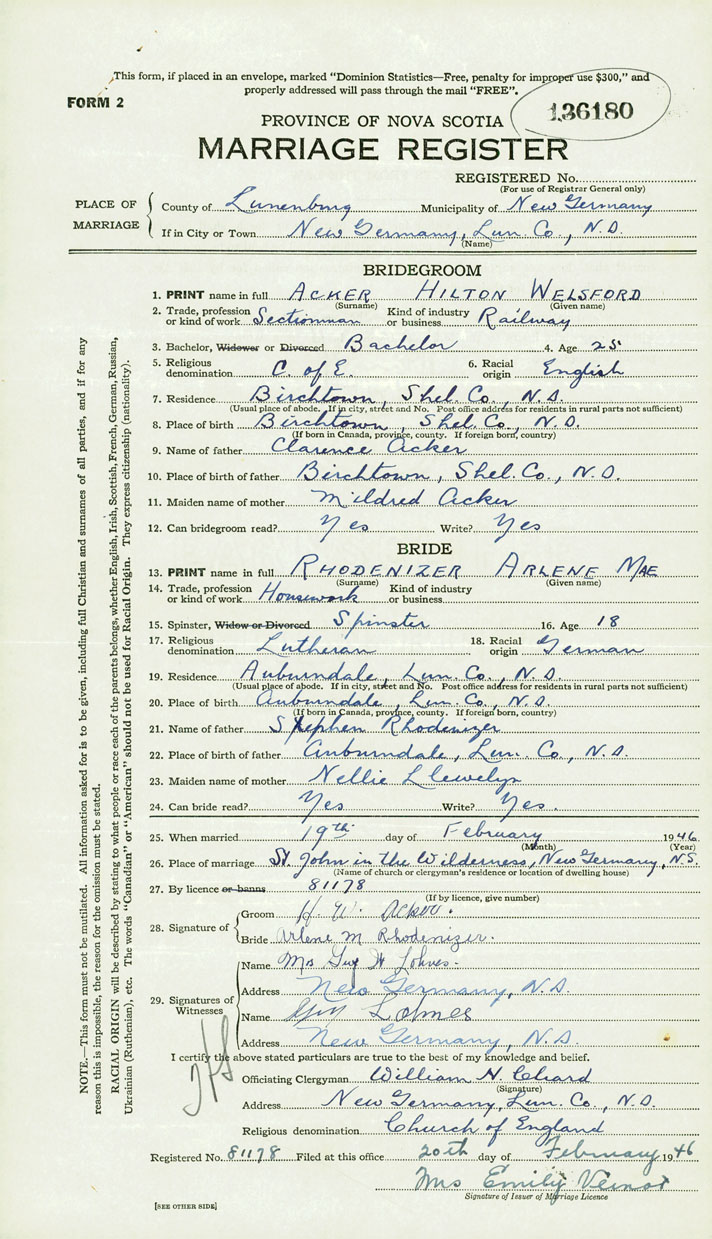 This form, if placed in an envelope, marked "Dominion Statistics—Free, penalty for improper use $300," and
properly addressed will pass through the mail "FREE".
FORM 2
136180
PROVINCE OF NOVA SCOTIA
MARRIAGE REGISTER
REGISTERED No.
(For use of Registrar General only)
PLACE OF MARRIAGE
County of Lunenburg Municipality of New Germany
If in City or Town New Germany, Lun. Co., N.S.
(Name)
BRIDEGROOM
1. PRINT name in full ACKER HILTON WELSFORD
(Surname) (Given name)
2. Trade, profession or kind of work Sectionman Kind of industry or business Railway
3. Bachelor, Widower or Divorced Bachelor 4. Age 25
5. Religious denomination C. of E. 6. Racial origin English
7. Residence Birchtown, Shel. Co., N.S.
(Usual place of abode. If in city, street and No. Post office address for residents in rural parts not sufficient)
8. Place of birth Birchtown, Shel. Co., N.S.
(If born in Canada, province, county. If foreign born, country)
9. Name of father Clarence Acker
10. Place of birth of father Birchtown, Shel. Co., N.S.
11. Maiden name of mother Mildred Acker
12. Can bridegroom read? Yes Write? Yes
BRIDE
13. PRINT name in full RHODENIZER ARLENE MAE
(Surname) (Given name)
14. Trade, profession or kind of work Housework Kind of industry or business
15. Spinster, Widow or Divorced Spinster 16. Age 18
17. Religious denomination Lutheran 18. Racial origin German
19. Residence Auburndale, Lun. Co., N.S.
(Usual place of abode. If in city, street and No. Post office address for residents in rural parts not sufficient)
20. Place of birth Auburndale, Lun. Co., N.S.
(If born in Canada, province, county. If foreign born, country)
21. Name of father Stephen Rhodenizer
22. Place of birth of father Auburndale, Lun. Co., N.S.
23. Maiden name of mother Nellie Llewelyn
24. Can bride read? Yes Write? Yes.
25. When married 19th day of February 1946
(Month) (Year)
26. Place of marriage St. John in the Wilderness, New Germany, N.S.
(Name of church or clergyman's residence or location of dwelling house)
27. By licence or banns 81178
(If by licence, give number)
28. Signature of
Groom H. W. Acker.
Bride Arlene M Rhodenizer.
29. Signatures of Witnesses
Name Mrs Guy H
Address New Germany, N.S.
Name
Address New Germany, N.S.
I certify the above stated particulars are true to the best of my knowledge and belief.
Officiating Clergyman William H.
(Signature)
Address New Germany, Lun. Co., N.S.
Religious denomination Church of England
Registered No. 81178 Filed at this office 20th day of February 1946
Mrs Emily Veinot
Signature of Issuer of Marriage Licence
[SEE OTHER SIDE]
NOTE.—This form must not be mutilated. All information asked for is to be given, including full Christian and surnames of all parties, and if for any
reason this is impossible, the reason for the omission must be stated.
RACIAL ORIGIN will be described by stating to what people or race each of the parents belongs, whether English, Irish, Scottish, French, German, Russian,
Ukrainian (Ruthenian), etc. The words "Canadian" or "American" should not be used for Racial Origin. They express citizenship (nationality).